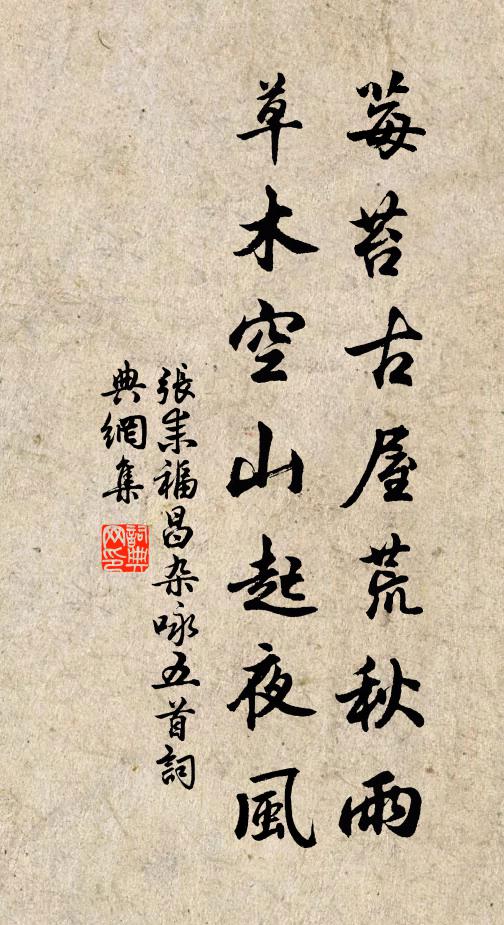 莓苔古屋荒秋雨
草木空山起夜風
張耒福昌杂咏五首詞
典網集
詞典网印